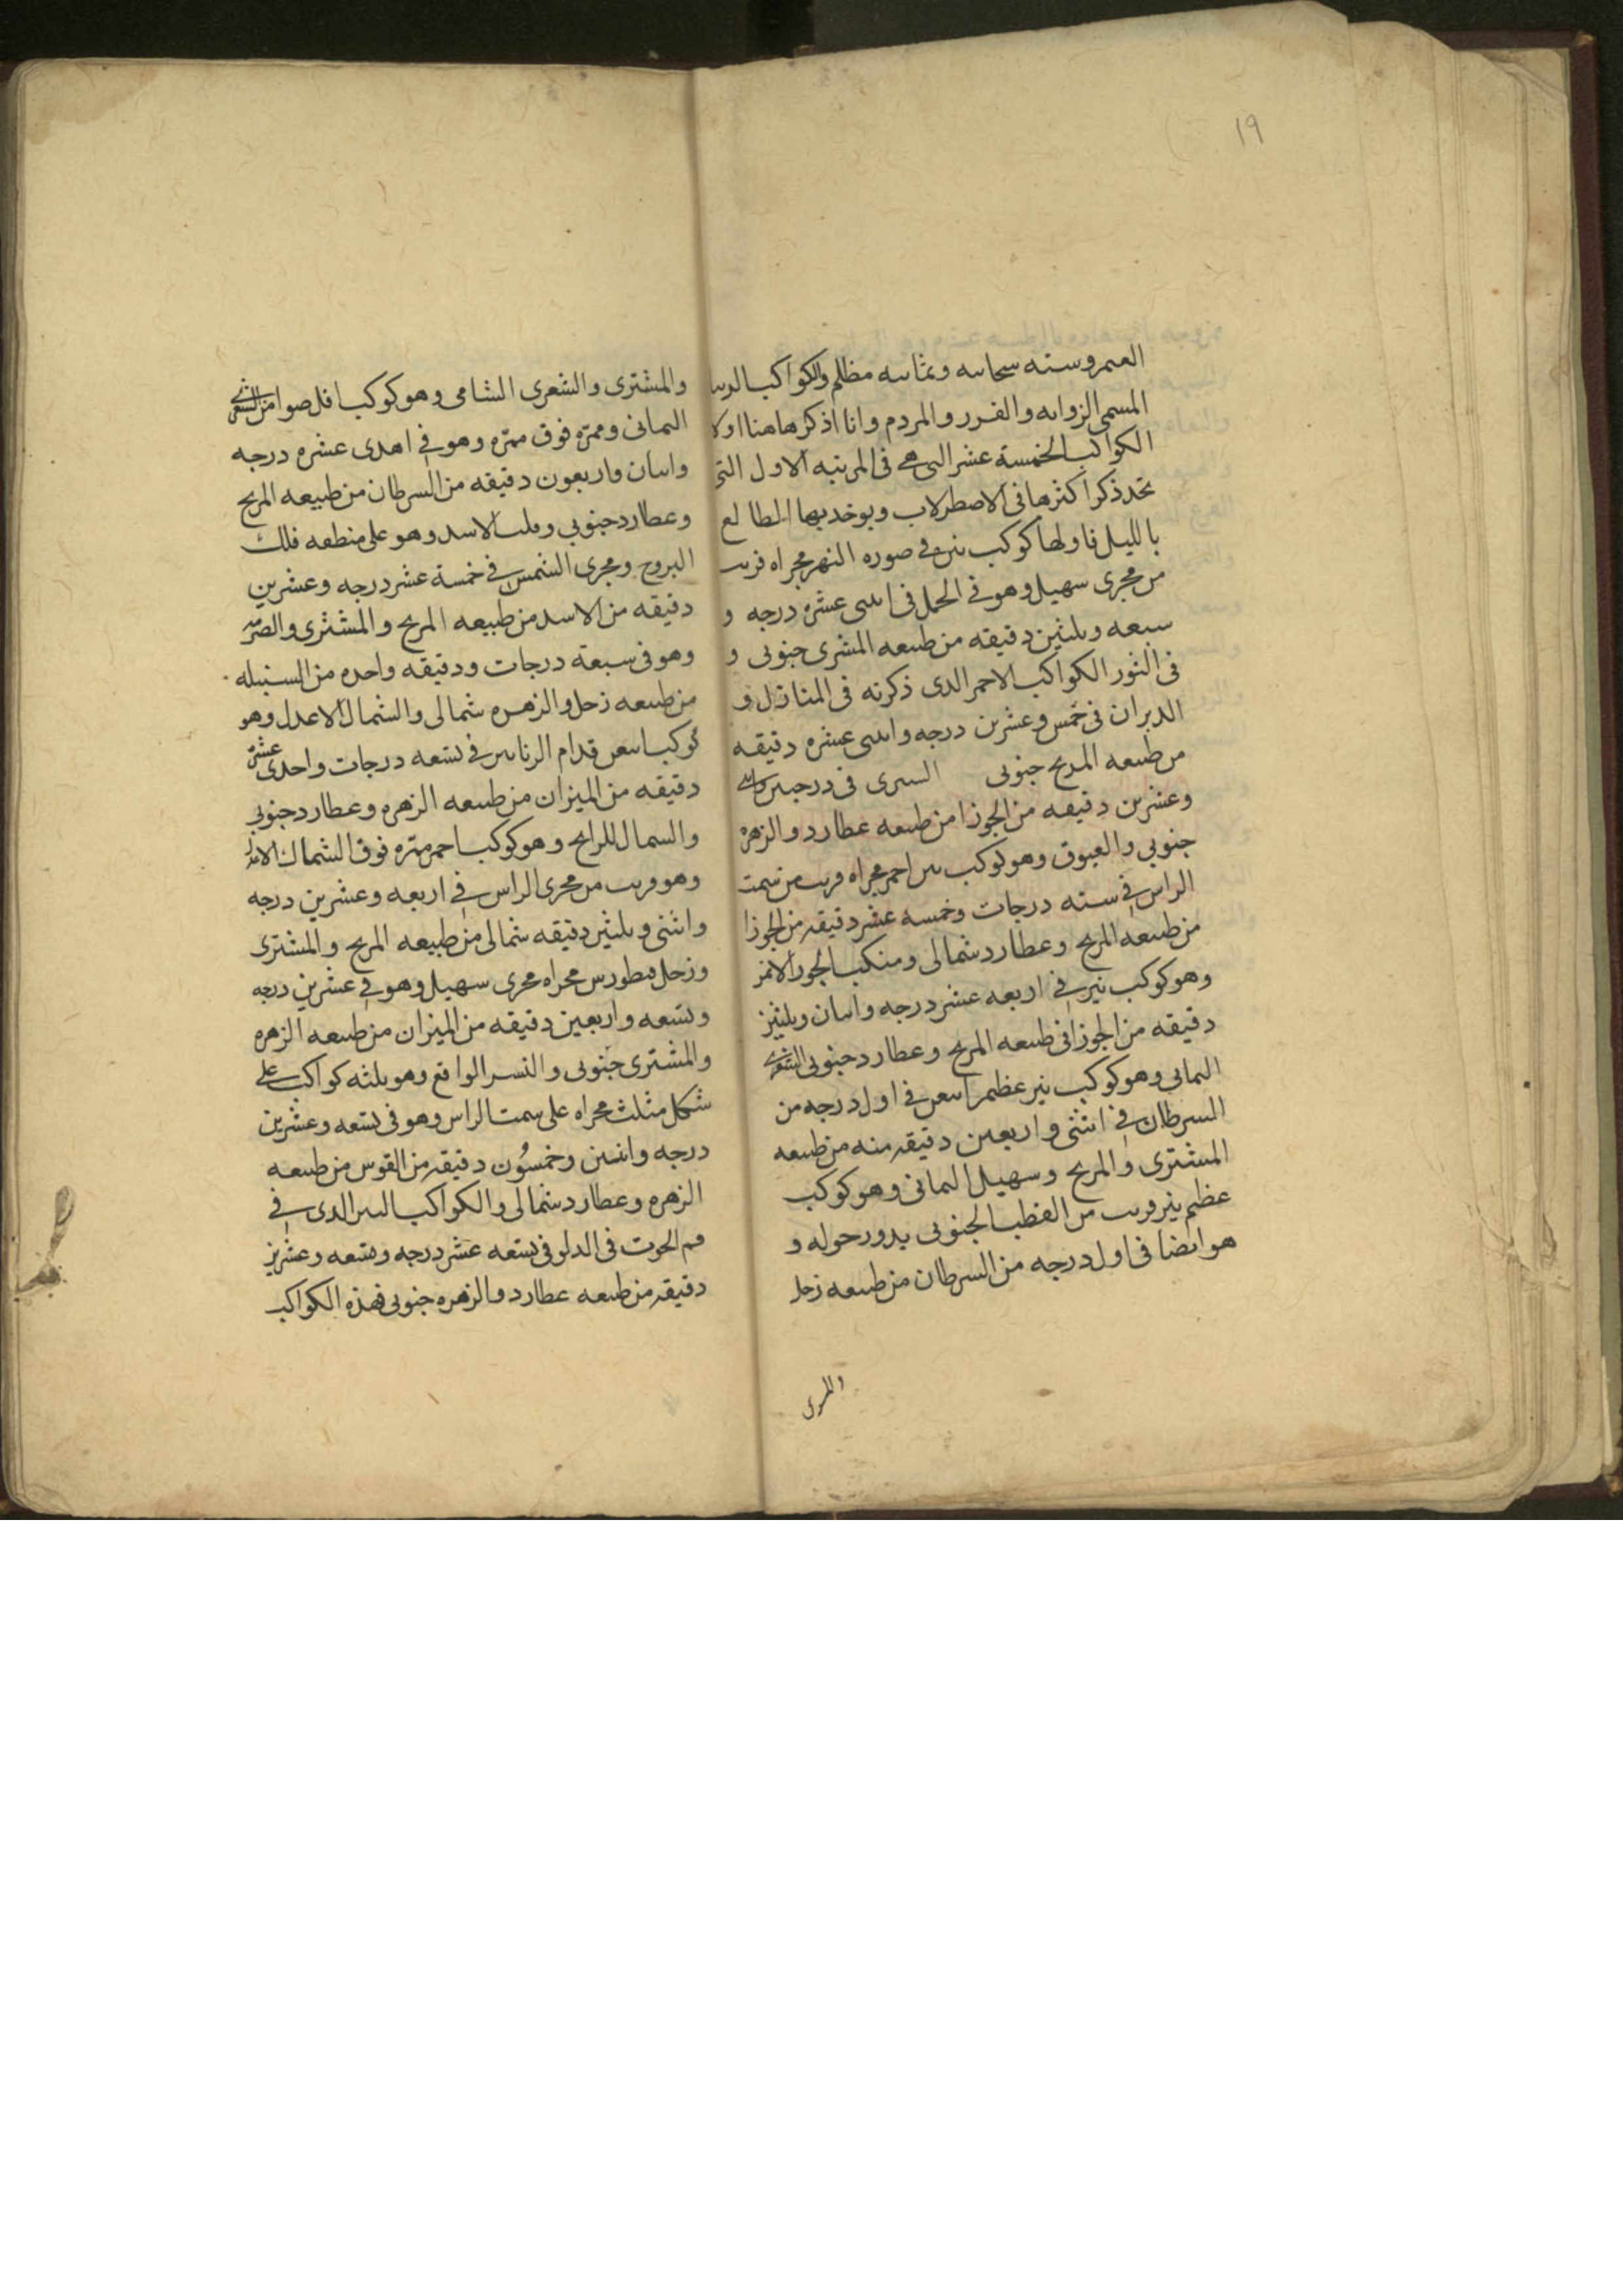 ١٩
وسته سحابيه وثمانيه مظلم والكواكب
المسمى الزوابه والفرر والمردم وانا اذكرها هنا اولا
الكواكب الخمسة عشر التى هي فى المرتبه الاول التى
تحد ذكر اكثرها فى الاصطرلاب ويوخد بها المطالع
بالليل فاولها كوكب نير في صوره النهر مجراه قريب
من مجرى سهيل وهو في الحمل فى اثنى عشره درجه و
سبعه وثلثين دقيقه من طبيعه المشترى جنوبى و
فى الثور الكواكب الاحمر الدى ذكرته فى المنازل و
الدبران فى خمس وعشرين درجه واثنى عشره دقيقه
من طبيعه المريخ جنوبى فى درجتين
وعشرين دقيقه من الجوزا من طبيعه عطارد والزهره
جنوبي والعيوق وهو كوكب نير احمر مجراه قريب من سمت
الراس في سته درجات وخمسه عشر دقيقه من الجوزا
من طبيعه المريخ وعطارد شمالى ومنكب الجوزا الايمن
وهو كوكب نير في اربعه عشر درجه واثنان وثلثين
دقيقه من الجوزا فى طبيعه المريخ وعطارد جنوبى الشعرى
اليمانى وهو كوكب نير عظيم ابيض في اول درجه من
السرطان في اثنتى واربعين دقيقه منه من طبيعه
المشترى والمريخ وسهيل اليمانى وهو كوكب
عظيم نير قريب من القطب الجنوبى يدور حوله و
هو ايضا فى اول درجه من السرطان من طبيعه زحل
والمشترى
والمشترى والشعرى الشامى وهو كوكب اقل ضوا من الشعرى
اليمانى وممره فوق ممره وهو في اهدى عشره درجه
واثنان واربعون دقيقه من السرطان من طبيعه المريخ
وعطارد جنوبي وقلب الاسد وهو على منطقه فلك
البروج ومجرى الشمس في خمسة عشر درجه وعشرين
دقيقه من الاسد من طبيعه المريخ والمشترى والصرفه
وهو فى سبعة درجات ودقيقه واحده من السنبله
من طبيعه زحل والزهره شمالى والشماك الاعدل وهو
كوكب ابيض قدام في تسعه درجات واحدى عشره
دقيقه من الميزان من طبيعه الزهره وعطارد جنوبي
والسماك للرامح وهو كوكب احمر ممره فوق الشماك
وهو قريب من مجرى الراس في اربعه وعشرين درجه
واثنى وثلثين دقيقه شمالى من طبيعه المريخ والمشترى
وزحل قنطورس مجراه مجرى سهيل وهو في عشرين درجه
وتسعه واربعين دقيقه من الميزان من طبيعه الزهره
والمشترى جنوبى والنسر الواقع وهو ثلثه كواكب على
شكل مثلث مجراه على سمت الراس وهو فى تسعه وعشرين
درجه واثنين وخمسون دقيقه من القوس من طبيعه
الزهره وعطارد شمالى والكواكب النير الدى في
فم الحوت فى الدلو فى تسعه عشر درجه وتسعه وعشرين
دقيقه من طبيعه عطارد والزهره جنوبى فهذه الكواكب